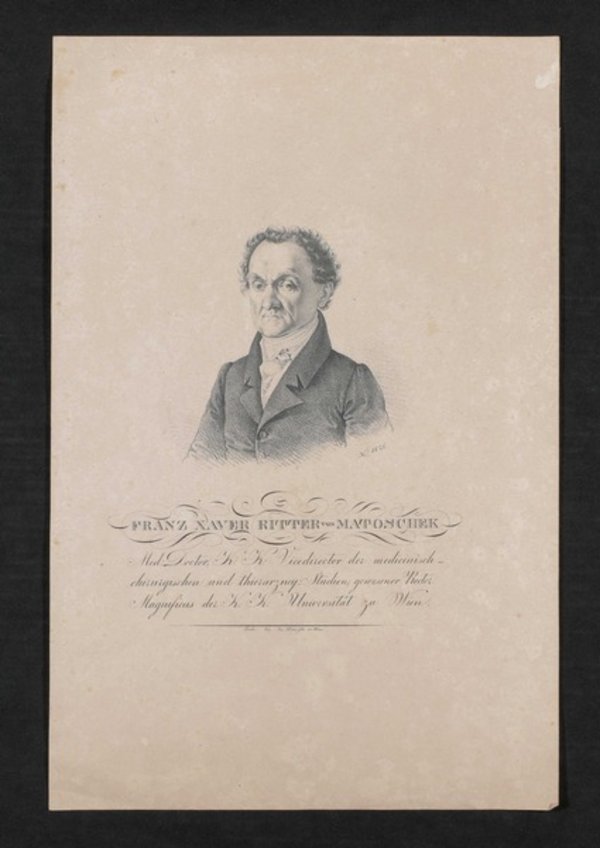 FRANZ XAVER RITTER von MATOSCHEK
Med. Doctor, K. K. Vicedirector der medicinisch-
chirurgischen und thierarzney. Studien, gewesener Rector
Magnificus der K. K. Universität zu Wien.